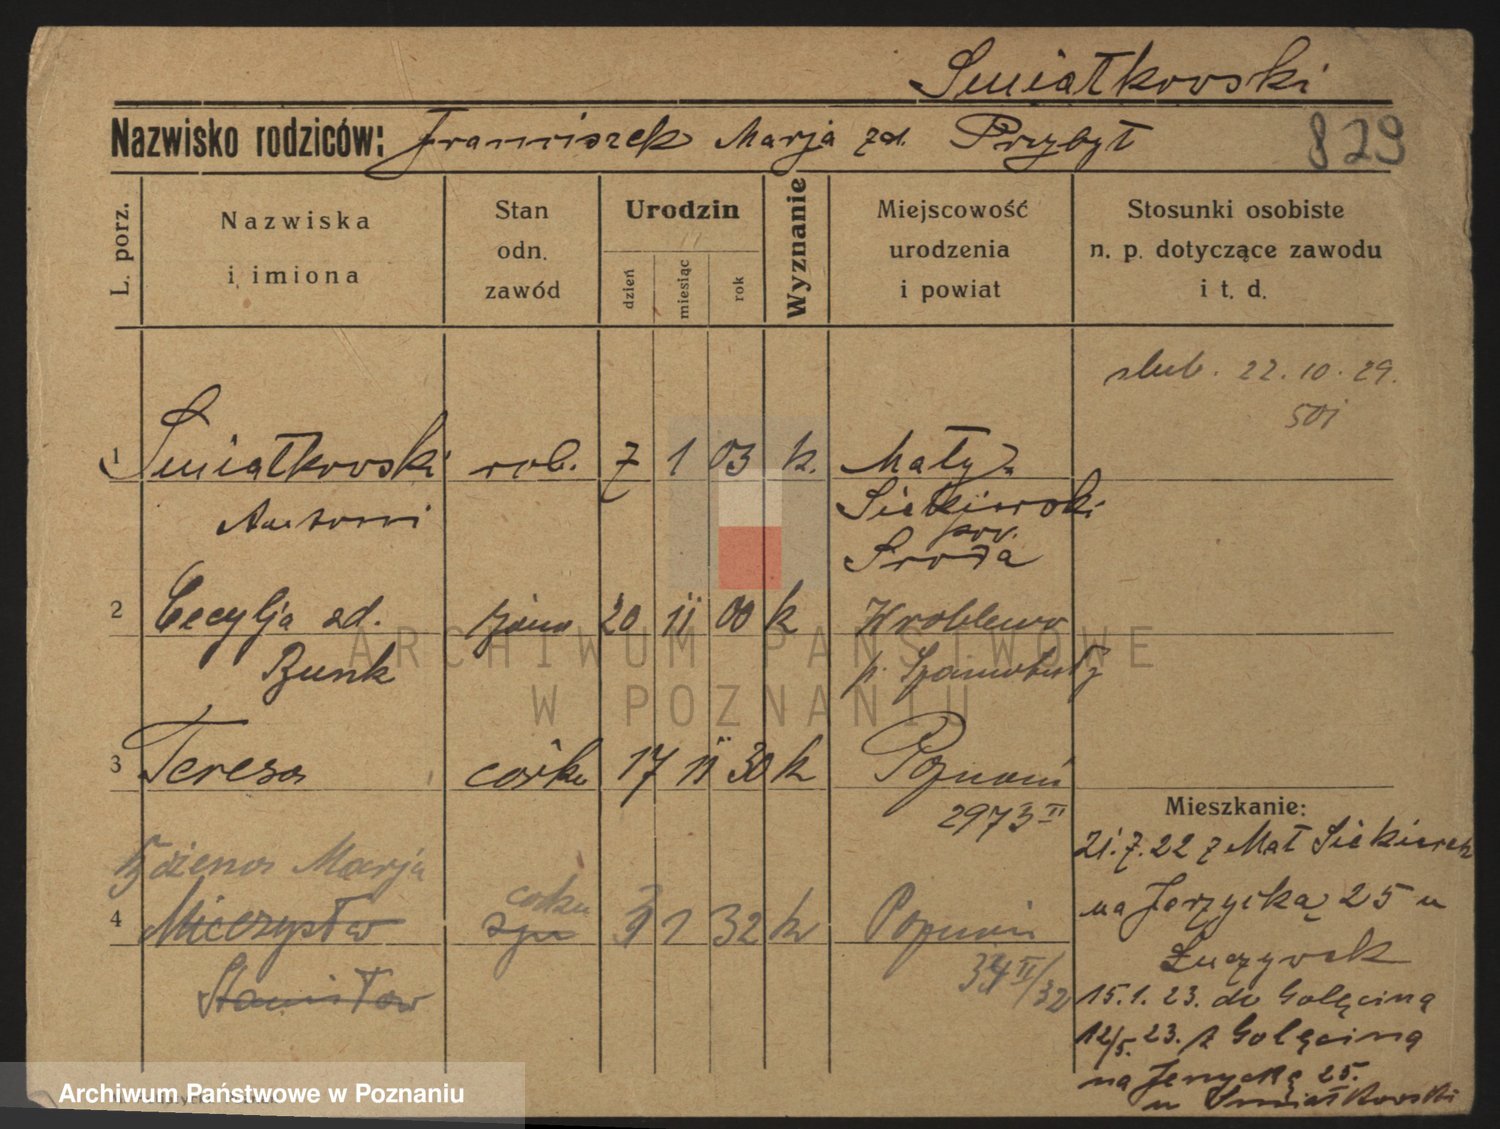 Smiałkowski
Nazwisko rodziców: Franciszek Marja zd. Przybył 829
L. porz.
Nazwiska
i imiona
Stan
odn.
zawód
Urodzin
dzień
miesiąc
rok
Wyznanie
Miejscowość
urodzenia
i powiat
Stosunki osobiste
n. p. dotyczące zawodu
i t. d.
slub. 22.10.29.
501
1 Smiałkowski rob. 7 1 03 k. Mały
Antoni Siekierski
pow.
Sroda
2 Cecylja zd. żona 20 11 00 k Wroblewo
Bunk p. Szamotuły
3 Teresa córka 17 11 30 k Poznań
2973 II
Bożena Marja
córka
4 Mieczysław syn 1 32 k Poznań
Stanisław 34 II/32
Mieszkanie:
21.7.22 z Mał Siekierek
na Jerzycką 25 u
Łuczywek
15.1.23. do Golęcina
12/5.23. z Golęcina
na Jerzycką 25.
u Smiałkowski
ARCHIWUM PAŃSTWOWE
W POZNANIU
Archiwum Państwowe w Poznaniu